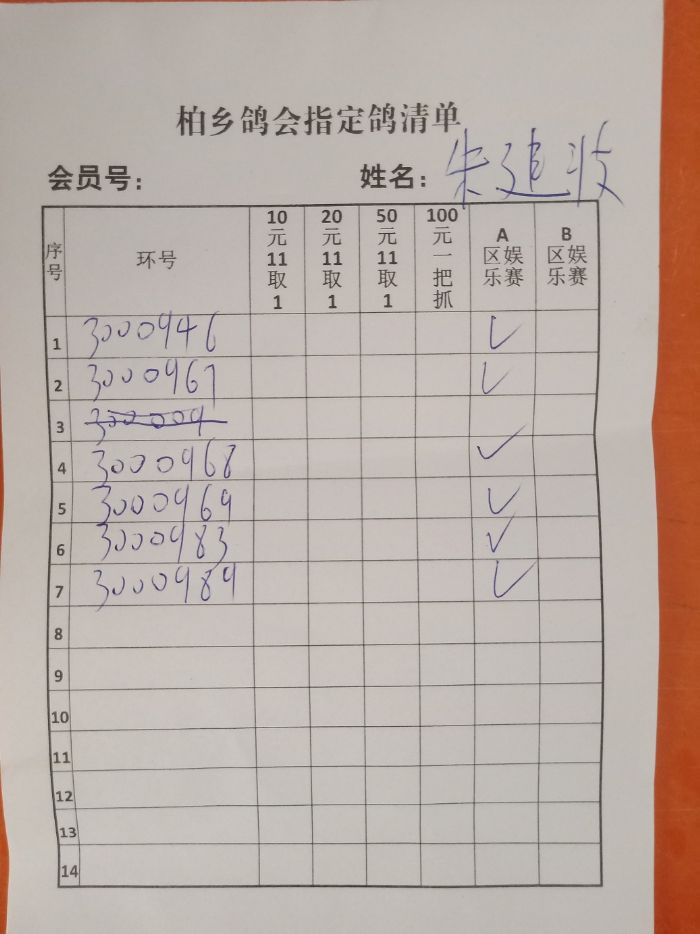 柏乡鸽会指定鸽清单
会员号: 姓名: 朱建波
序号 环号 10元11取1 20元11取1 50元11取1 100元一把抓 A区娱乐赛 B区娱乐赛
1 3000946 ✓
2 3000967 ✓
3 300009
4 3000968 ✓
5 3000969 ✓
6 3000983 ✓
7 3000989 ✓
8
9
10
11
12
13
14